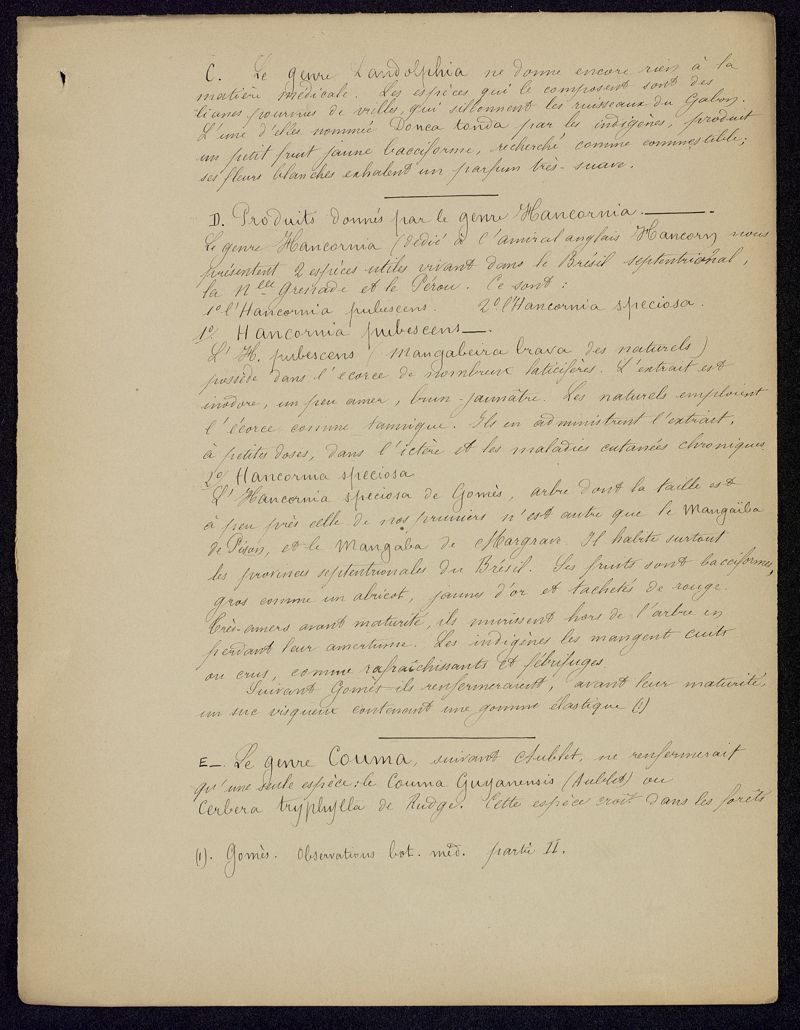 C. Le genre Landolphia ne donne encore rien à la
matière médicale. Les espèces qui le composent sont des
lianes pourvues de vrilles, qui sillonnent les ruisseaux du Gabon.
L'une d'elles nommée Donca tonda par les indigènes, produit
un petit fruit jaune bacciforme, recherché comme commestible;
ses fleurs blanches exhalent un parfum très-suave.
D. Produits donnés par le genre Hancornia.
Le genre Hancornia (dédié à l'amiral anglais Hancorn) nous
présentent 2 espèces utiles vivant dans le Brésil septentrional,
la Nlle Grenade et le Pérou. Ce sont :
1º l'Hancornia pubescens. 2º l'Hancornia speciosa.
1º Hancornia pubescens—.
L'H. pubescens (Mangabeira brava des naturels)
possède dans l'écorce de nombreux laticifères. L'extrait est
inodore, un peu amer, brun-jaunâtre. Les naturels emploient
l'écorce comme tannique. Ils en administrent l'extrait,
à petites doses, dans l'ictère et les maladies cutanées chroniques
2º Hancornia speciosa
L'Hancornia speciosa de Gomès, arbre dont la taille est
à peu près celle de nos pruniers n'est autre que le Mangaïba
de Pison, et le Mangaba de Margrave. Il habite surtout
les provinces septentrionales du Brésil. Ses fruits sont bacciformes,
gros comme un abricot, jaunes d'or et tachetés de rouge.
Très-amers avant maturité, ils murissent hors de l'arbre en
perdant leur amertume. Les indigènes les mangent cuits
ou crus, comme rafraîchissants et fébrifuges.
Suivant Gomès ils renfermeraient, avant leur maturité,
un suc visqueux contenant une gomme élastique (1)
E—. Le genre Couma, suivant Aublet, ne renfermerait
qu'une seule espèce : le Couma Guyanensis (Aublet) ou
Cerbera tryphylla de Rudge. Cette espèce croît dans les forêts
(1). Gomès. Observations bot. méd. partie II.